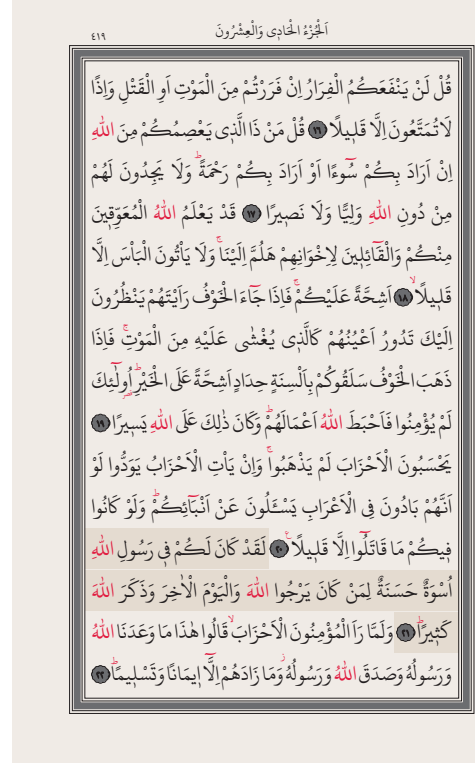 اَلْجُزْءُ الْحَادِى وَالْعِشْرُونَ
٤١٩
قُلْ لَنْ يَنْفَعَكُمُ الْفِرَارُ اِنْ فَرَرْتُمْ مِنَ الْمَوْتِ اَوِ الْقَتْلِ وَاِذًا
لَا تُمَتَّعُونَ اِلَّا قَل۪يلًا ﴿١٦﴾ قُلْ مَنْ ذَا الَّذ۪ي يَعْصِمُكُمْ مِنَ اللّٰهِ
اِنْ اَرَادَ بِكُمْ سُٓوءًا اَوْ اَرَادَ بِكُمْ رَحْمَةًۜ وَلَا يَجِدُونَ لَهُمْ
مِنْ دُونِ اللّٰهِ وَلِيًّا وَلَا نَص۪يرًا ﴿١٧﴾ قَدْ يَعْلَمُ اللّٰهُ الْمُعَوِّق۪ينَ
مِنْكُمْ وَالْقَٓائِل۪ينَ لِاِخْوَانِهِمْ هَلُمَّ اِلَيْنَاۚ وَلَا يَأْتُونَ الْبَأْسَ اِلَّا
قَل۪يلًاۙ ﴿١٨﴾ اَشِحَّةً عَلَيْكُمْۚ فَاِذَا جَٓاءَ الْخَوْفُ رَاَيْتَهُمْ يَنْظُرُونَ
اِلَيْكَ تَدُورُ اَعْيُنُهُمْ كَالَّذ۪ي يُغْشٰى عَلَيْهِ مِنَ الْمَوْتِۚ فَاِذَا
ذَهَبَ الْخَوْفُ سَلَقُوكُمْ بِاَلْسِنَةٍ حِدَادٍ اَشِحَّةً عَلَى الْخَيْرِۜ اُو۬لٰٓئِكَ
لَمْ يُؤْمِنُوا فَاَحْبَطَ اللّٰهُ اَعْمَالَهُمْۜ وَكَانَ ذٰلِكَ عَلَى اللّٰهِ يَس۪يرًا ﴿١٩﴾
يَحْسَبُونَ الْاَحْزَابَ لَمْ يَذْهَبُواۚ وَاِنْ يَأْتِ الْاَحْزَابُ يَوَدُّوا لَوْ
اَنَّهُمْ بَادُونَ فِي الْاَعْرَابِ يَسْـَٔلُونَ عَنْ اَنْبَٓائِكُمْۜ وَلَوْ كَانُوا
ف۪يكُمْ مَا قَاتَلُٓوا اِلَّا قَل۪يلًا۟ ﴿٢٠﴾ لَقَدْ كَانَ لَكُمْ ف۪ي رَسُولِ اللّٰهِ
اُسْوَةٌ حَسَنَةٌ لِمَنْ كَانَ يَرْجُوا اللّٰهَ وَالْيَوْمَ الْاٰخِرَ وَذَكَرَ اللّٰهَ
كَث۪يرًاۜ ﴿٢١﴾ وَلَمَّا رَاَ الْمُؤْمِنُونَ الْاَحْزَابَۙ قَالُوا هٰذَا مَا وَعَدَنَا اللّٰهُ
وَرَسُولُهُ وَصَدَقَ اللّٰهُ وَرَسُولُهُۘ وَمَا زَادَهُمْ اِلَّٓا ا۪يمَانًا وَتَسْل۪يمًاۜ ﴿٢٢﴾